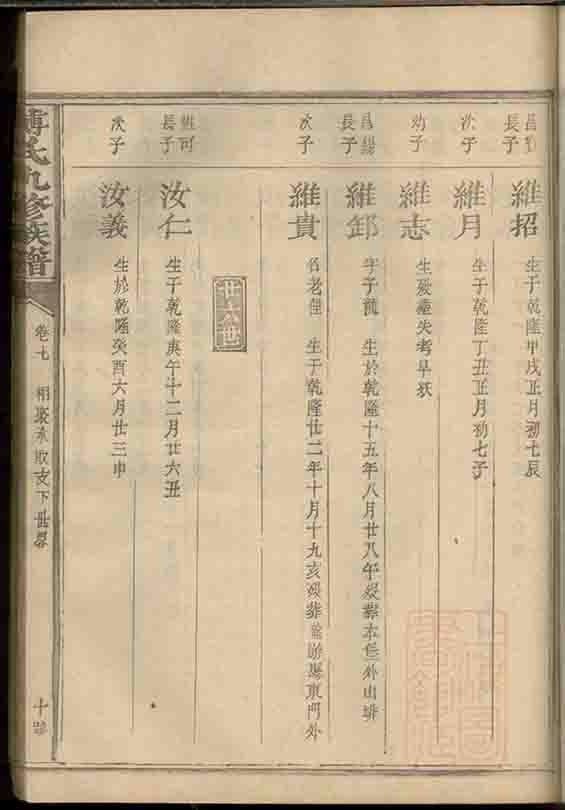 長子 維招 生于乾隆甲戌正月初七辰
次子 維月 生于乾隆丁丑正月初七子
幼子 維志 生歿塟失考早殀
長子 維卸 字子 生於乾隆十五年八月廿八午歿塟本 外山排
次子 維貴 名老 生于乾隆廿二年十月十九亥歿葬 東門外
廿六世
長子 汝仁 生于乾隆庚午十二月廿六丑
次子 汝義 生於乾隆癸酉六月廿三申
傅氏九修族譜
卷七 下世系
十